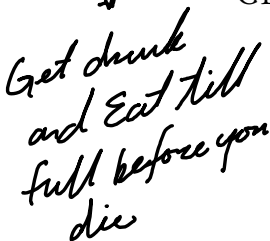 Get drunk
and Eat till
full before you
die